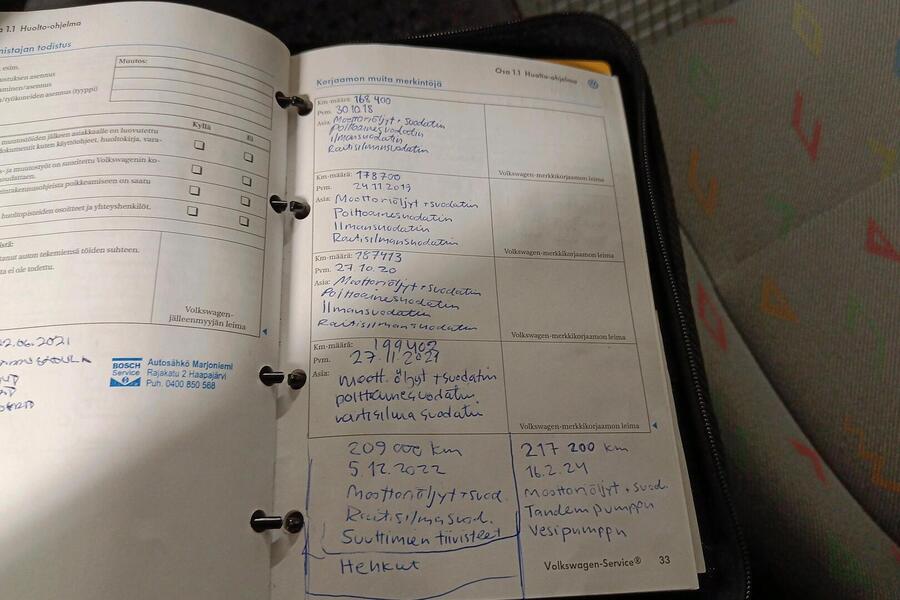 1.1 Huolto-ohjelma
nistajan todistus
esim.
ostuksen asennus
aminen/asennus
n/työkoneiden asennus (tyyppi)
Muutos:
Kyllä
Ei
muutostöiden jälkeen asiakkaalle on luovutettu
dokumentit kuten käyttöohjeet, huoltokirja, vara-
- ja muutostyöt on suoritettu Volkswagenin ko-
oudattaen.
einrakennusohjeista poikkeamiseen on saatu
huoltopisteiden osoitteet ja yhteyshenkilöt.
istä:
tanut auton tekemiensä töiden suhteen.
ta ei ole todettu.
Volkswagen-
jälleenmyyjän leima
2.06.2021
BOSCH
Service
Autosähkö Marjoniemi
Rajakatu 2 Haapajärvi
Puh. 0400 850 568
Osa 1.1 Huolto-ohjelma
Korjaamon muita merkintöjä
Km-määrä: 168 400
Pvm. 30.10.18
Asia: Moottoriöljyt + suodatin
Polttoainesuodatin
Ilmansuodatin
Raitisilmansuodatin
Volkswagen-merkkikorjaamon leima
Km-määrä: 178700
Pvm. 24.11.2019
Asia: Moottoriöljyt + suodatin
Polttoainesuodatin
Ilmansuodatin
Raitisilmansuodatin
Volkswagen-merkkikorjaamon leima
Km-määrä: 187413
Pvm. 27.10.20
Asia: Moottoriöljyt + suodatin
Polttoainesuodatin
Ilmansuodatin
Raitisilmansuodatin
Volkswagen-merkkikorjaamon leima
Km-määrä: 199402
Pvm. 27.11.2021
Asia: moott. öljyt + suodatin
polttoainesuodatin
raitisilmasuodatin
Volkswagen-merkkikorjaamon leima
209 000 km
5.12.2022
Moottoriöljyt + suod.
Raitisilmasuod.
Suuttimien tiivisteet
Hehkut
217 200 km
16.2.24
Moottoriöljyt + suod.
Tandempumppu
Vesipumppu
Volkswagen-Service® 33